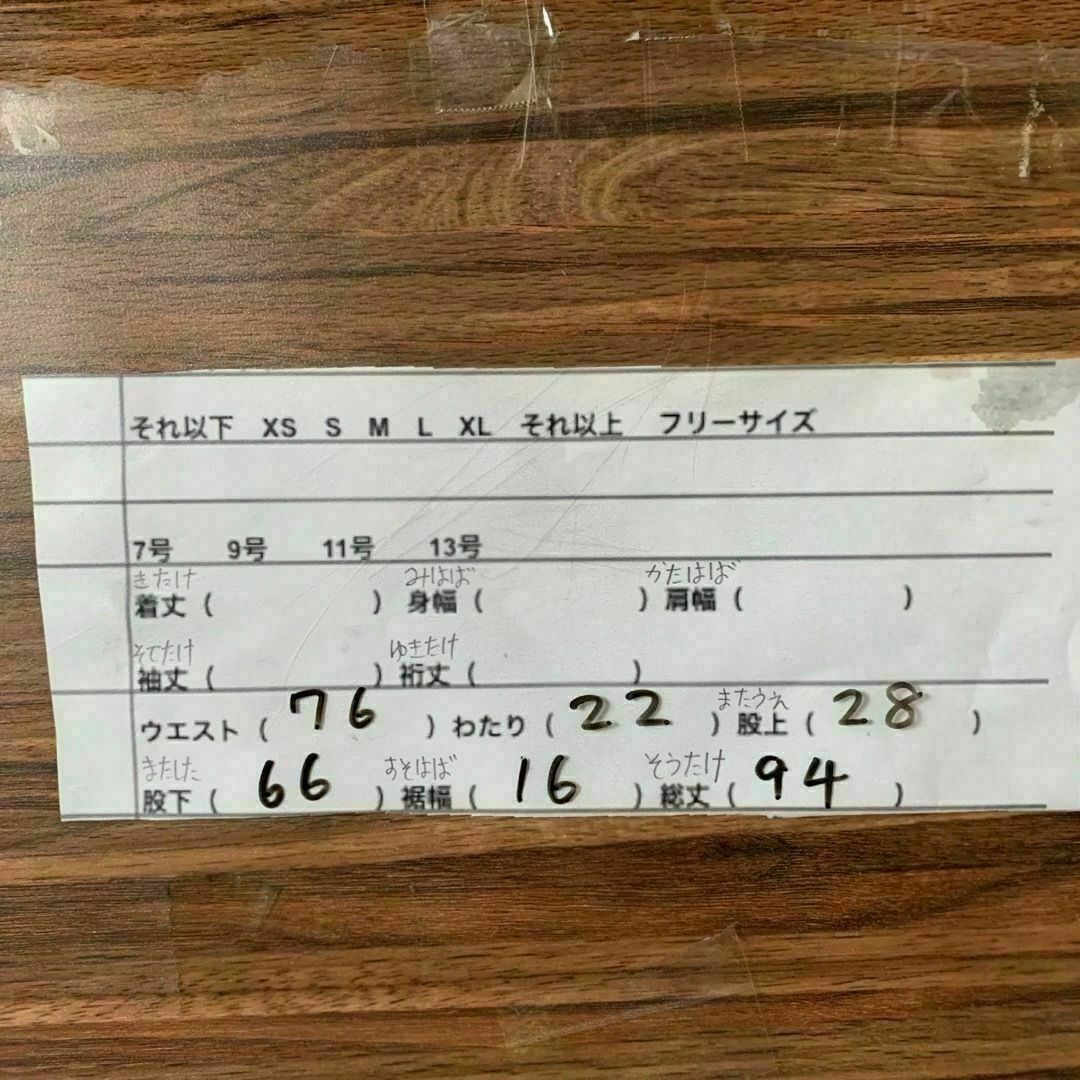 それ以下 XS S M L XL それ以上 フリーサイズ
7号 9号 11号 13号
きたけ みはば かたはば
着丈 ( ) 身幅 ( ) 肩幅 ( )
そでたけ ゆきたけ
袖丈 ( ) 裄丈 ( )
またうえ
ウエスト ( 76 ) わたり ( 22 ) 股上 ( 28 )
またした すそはば そうたけ
股下 ( 66 ) 裾幅 ( 16 ) 総丈 ( 94 )